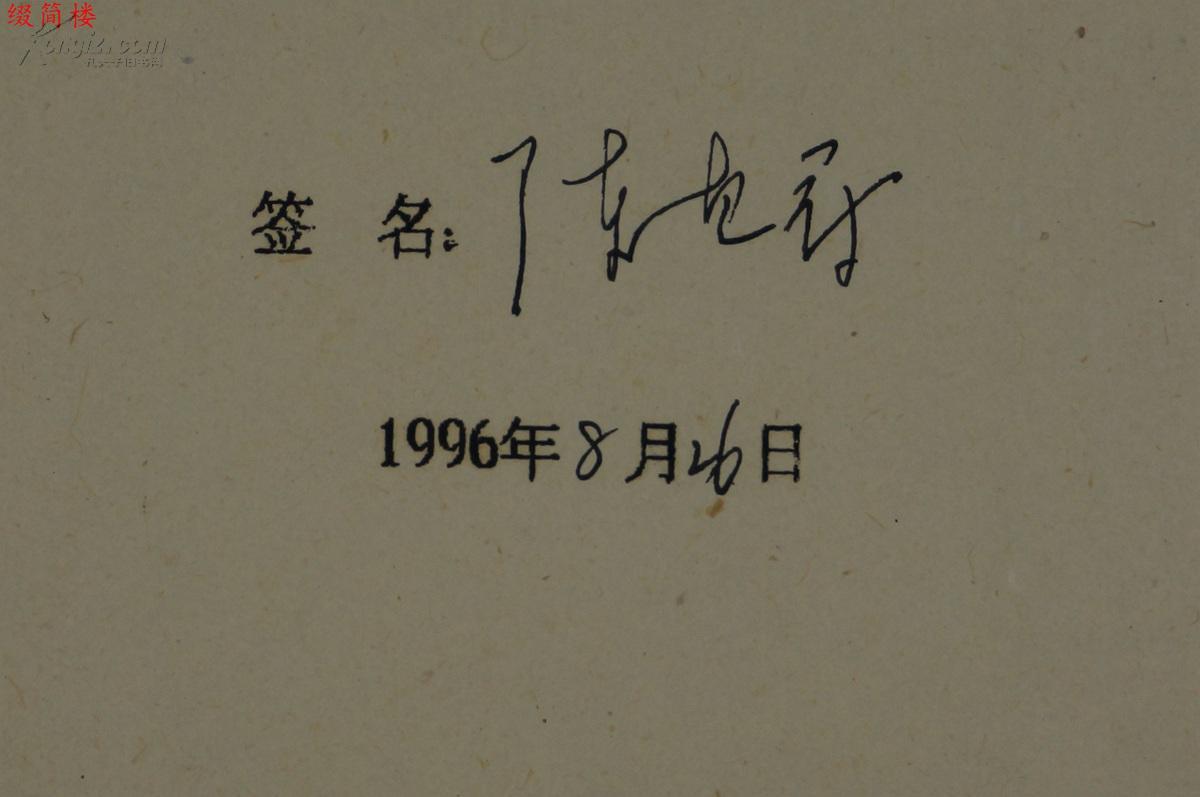 缀简楼
Kongfz.com
孔夫子旧书网
签 名: 陈
1996年8月26日